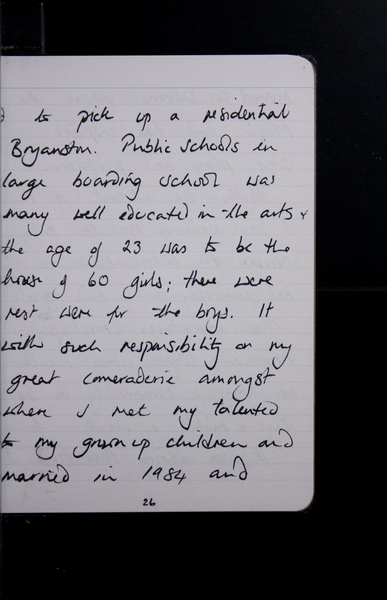 to pick up a residential
Bryanston. Public schools in
large boarding school was
many well educated in the arts &
the age of 23 was to be the
house of 60 girls; there were
rest were for the boys. It
with such responsibility on my
great comeraderie amongst
where I met my talented
to my grown up children and
married in 1984 and
26